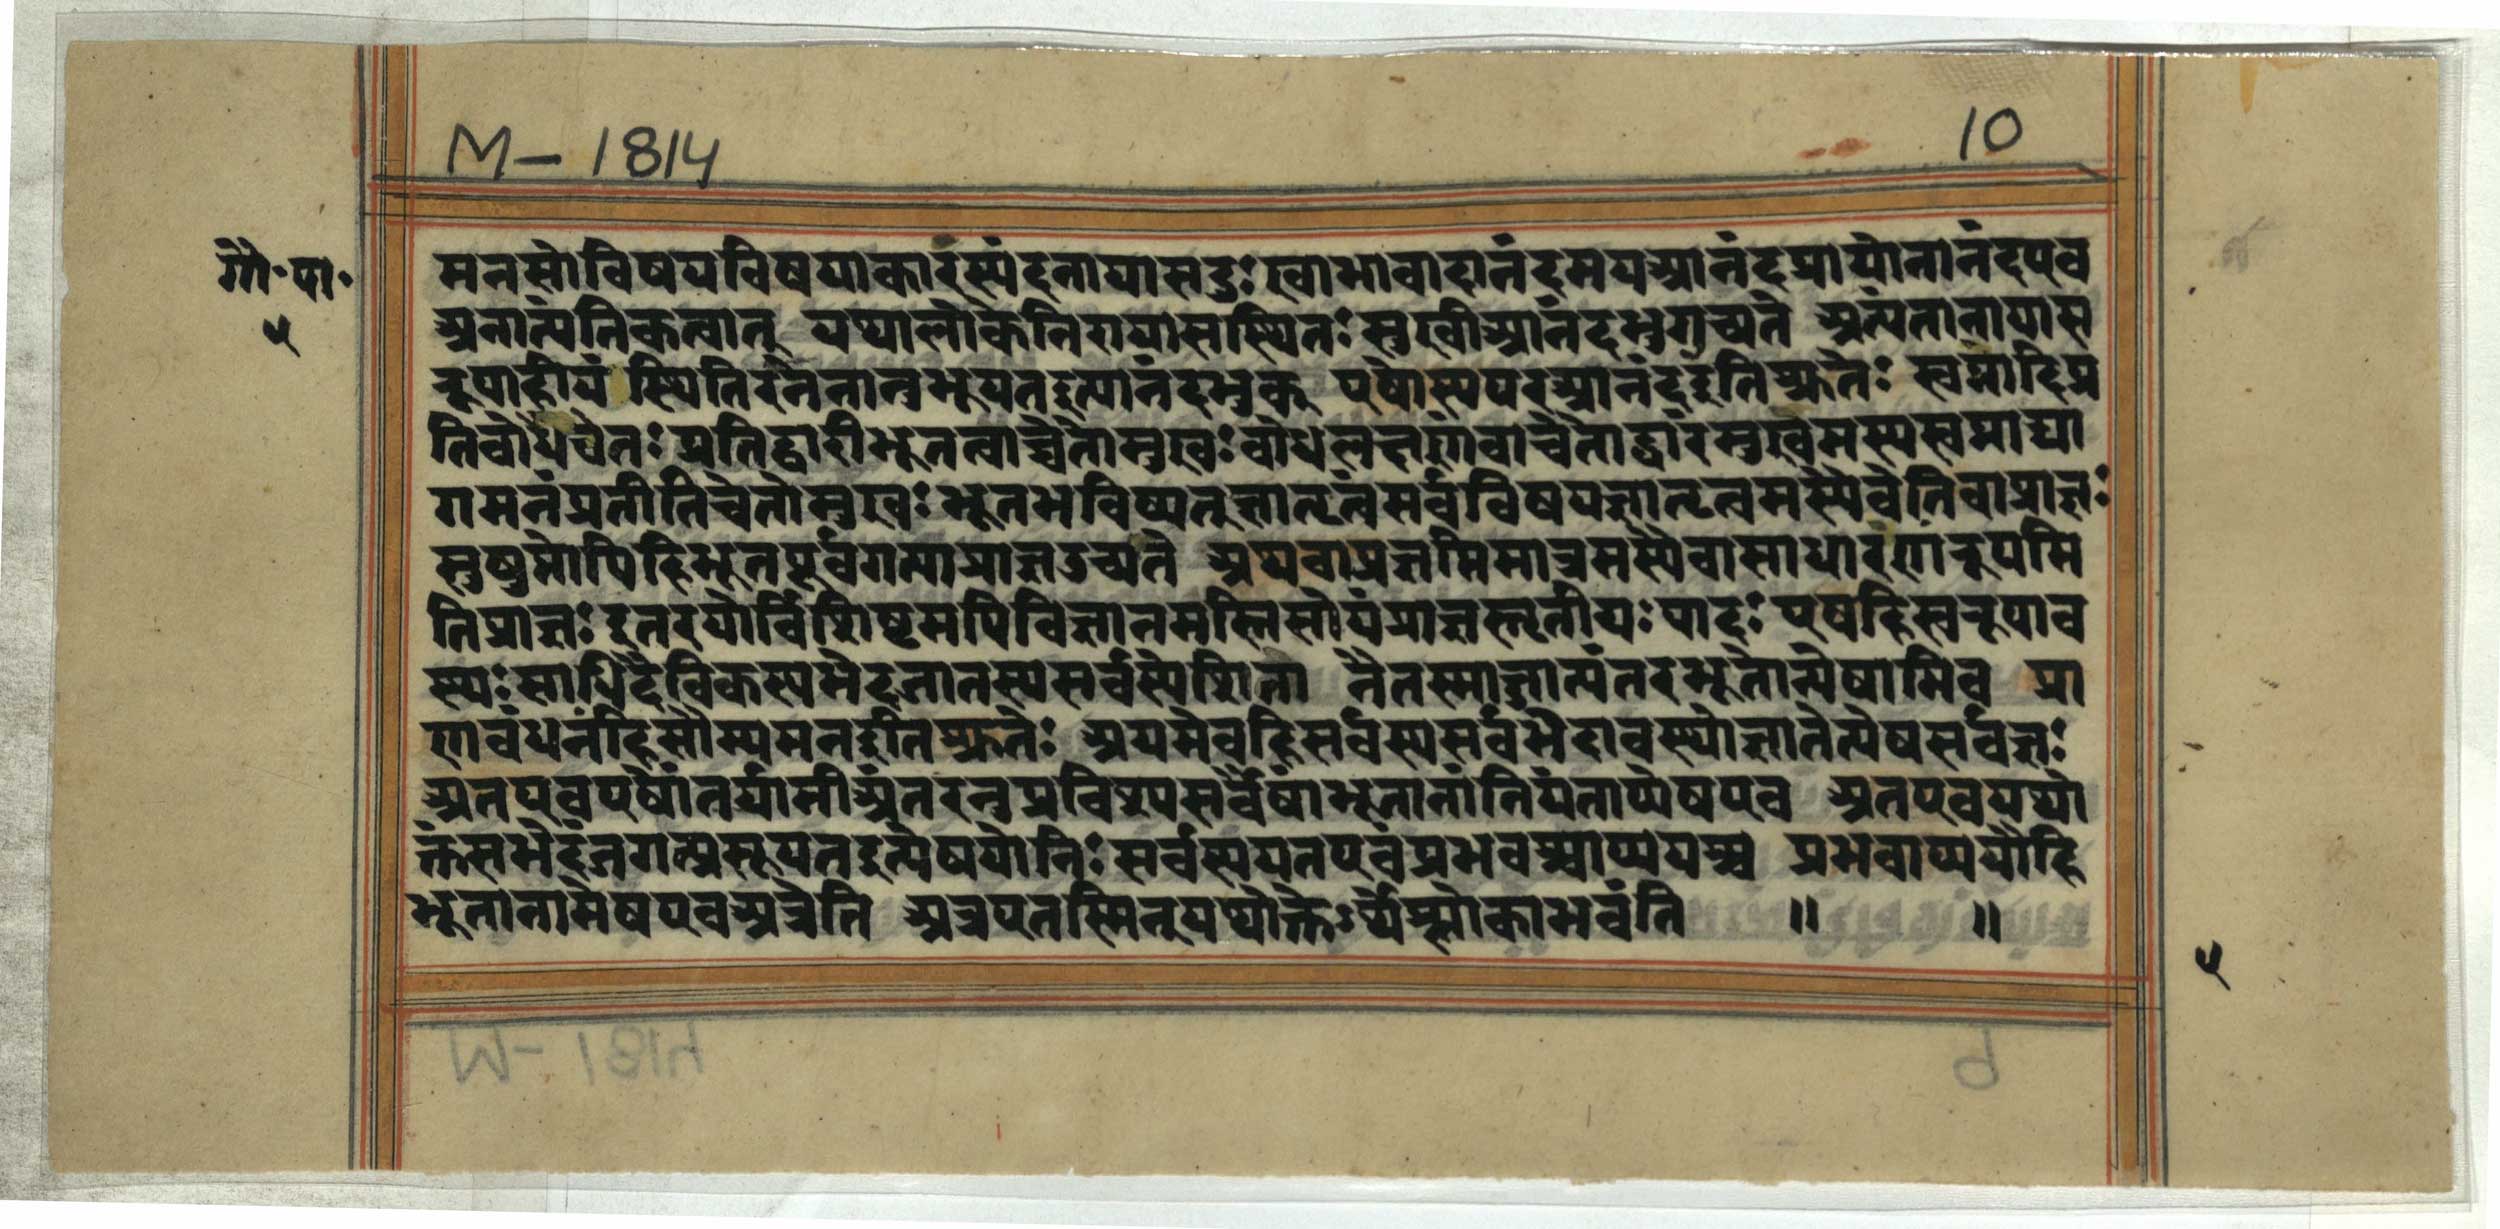 M-1814
10
गौ॰पा॰
५
मनसोविषयविषयाकारस्पंदनायासदुःखाभावादानंदमयआनंदप्रायोनानंदएव
अनात्यंतिकत्वात् यथालोकेनिरायासस्थितःसुखीआनंदभुगुच्यते अत्यंतानायास
रूपाहीयं स्थितिरनेनानुभूयतइत्यानंदभुक् एषोस्यपरआनंदइतिश्रुतेः स्वप्नादिप्र
तिबोधंचेतःप्रतिद्वारीभूतत्वाच्चेतोमुखःबोधलक्षणंवाचेतोद्वारंमुखमस्यस्वप्नाद्या
गमनंप्रतीतिचेतोमुखःभूतभविष्यत्ज्ञातृत्वंसर्वविषयज्ञातृत्वमस्यैवेतिवाप्राज्ञः
सुषुप्तोपिहिभूतपूर्वगत्याप्राज्ञउच्यते अथवाप्रज्ञप्तिमात्रमस्यैवासाधारणंरूपमि
तिप्राज्ञःइतरयोर्विशिष्टमपिविज्ञानमस्तिसोयंप्राज्ञस्तृतीयःपादः एषहिस्वरूपाव
स्थःसाधिदैविकस्यभेदजातस्यसर्वस्येशिता नैतस्माज्जात्यंतरभूतोन्येषामिव प्रा
णबंधनंहिसौम्यमनइतिश्रुतेः अयमेवहिसर्वस्यसर्वभेदावस्थोज्ञातेत्येषसर्वज्ञः
अतएवएषोंतर्यामीअंतरनुप्रविश्यसर्वेषांभूतानांनियंताप्येषएव अतएवयथो
क्तंसभेदंजगत्प्रसूयतइत्येषयोनिःसर्वस्ययतएवंप्रभवश्चाप्ययश्च प्रभवाप्ययौहि
भूतानामेषएवअत्रेति अत्रएतस्मिन्यथोक्तेऽर्थेश्लोकाभवंति ॥ ॥
५